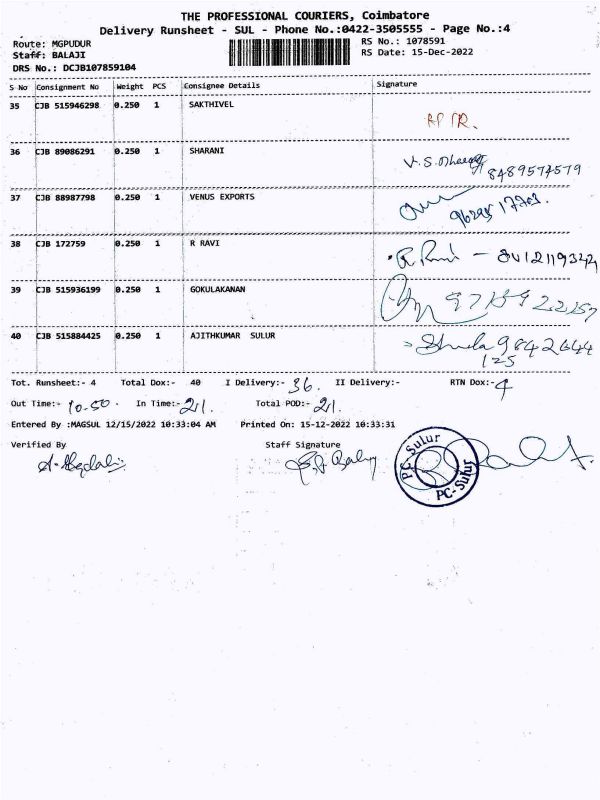 THE PROFESSIONAL COURIERS, Coimbatore
Delivery Runsheet - SUL - Phone No.:0422-3505555 - Page No.:4
Route: MGPUDUR RS No.: 1078591
Staff: BALAJI RS Date: 15-Dec-2022
DRS No.: DCJB107859104
S No Consignment No Weight PCS Consignee Details Signature
35 CJB 515946298 0.250 1 SAKTHIVEL
36 CJB 89086291 0.250 1 SHARANI
8489574579
37 CJB 88987798 0.250 1 VENUS EXPORTS
38 CJB 172759 0.250 1 R RAVI
R Ravi -
39 CJB 515936199 0.250 1 GOKULAKANAN
40 CJB 515884425 0.250 1 AJITHKUMAR SULUR
9842644
125
Tot. Runsheet:- 4 Total Dox:- 40 I Delivery:- 36. II Delivery:- RTN Dox:- 4
Out Time:- 10.50 . In Time:- 211. Total POD:- 211.
Entered By :MAGSUL 12/15/2022 10:33:04 AM Printed On: 15-12-2022 10:33:31
Verified By Staff Signature
PC-Sulur
PC-Sulur